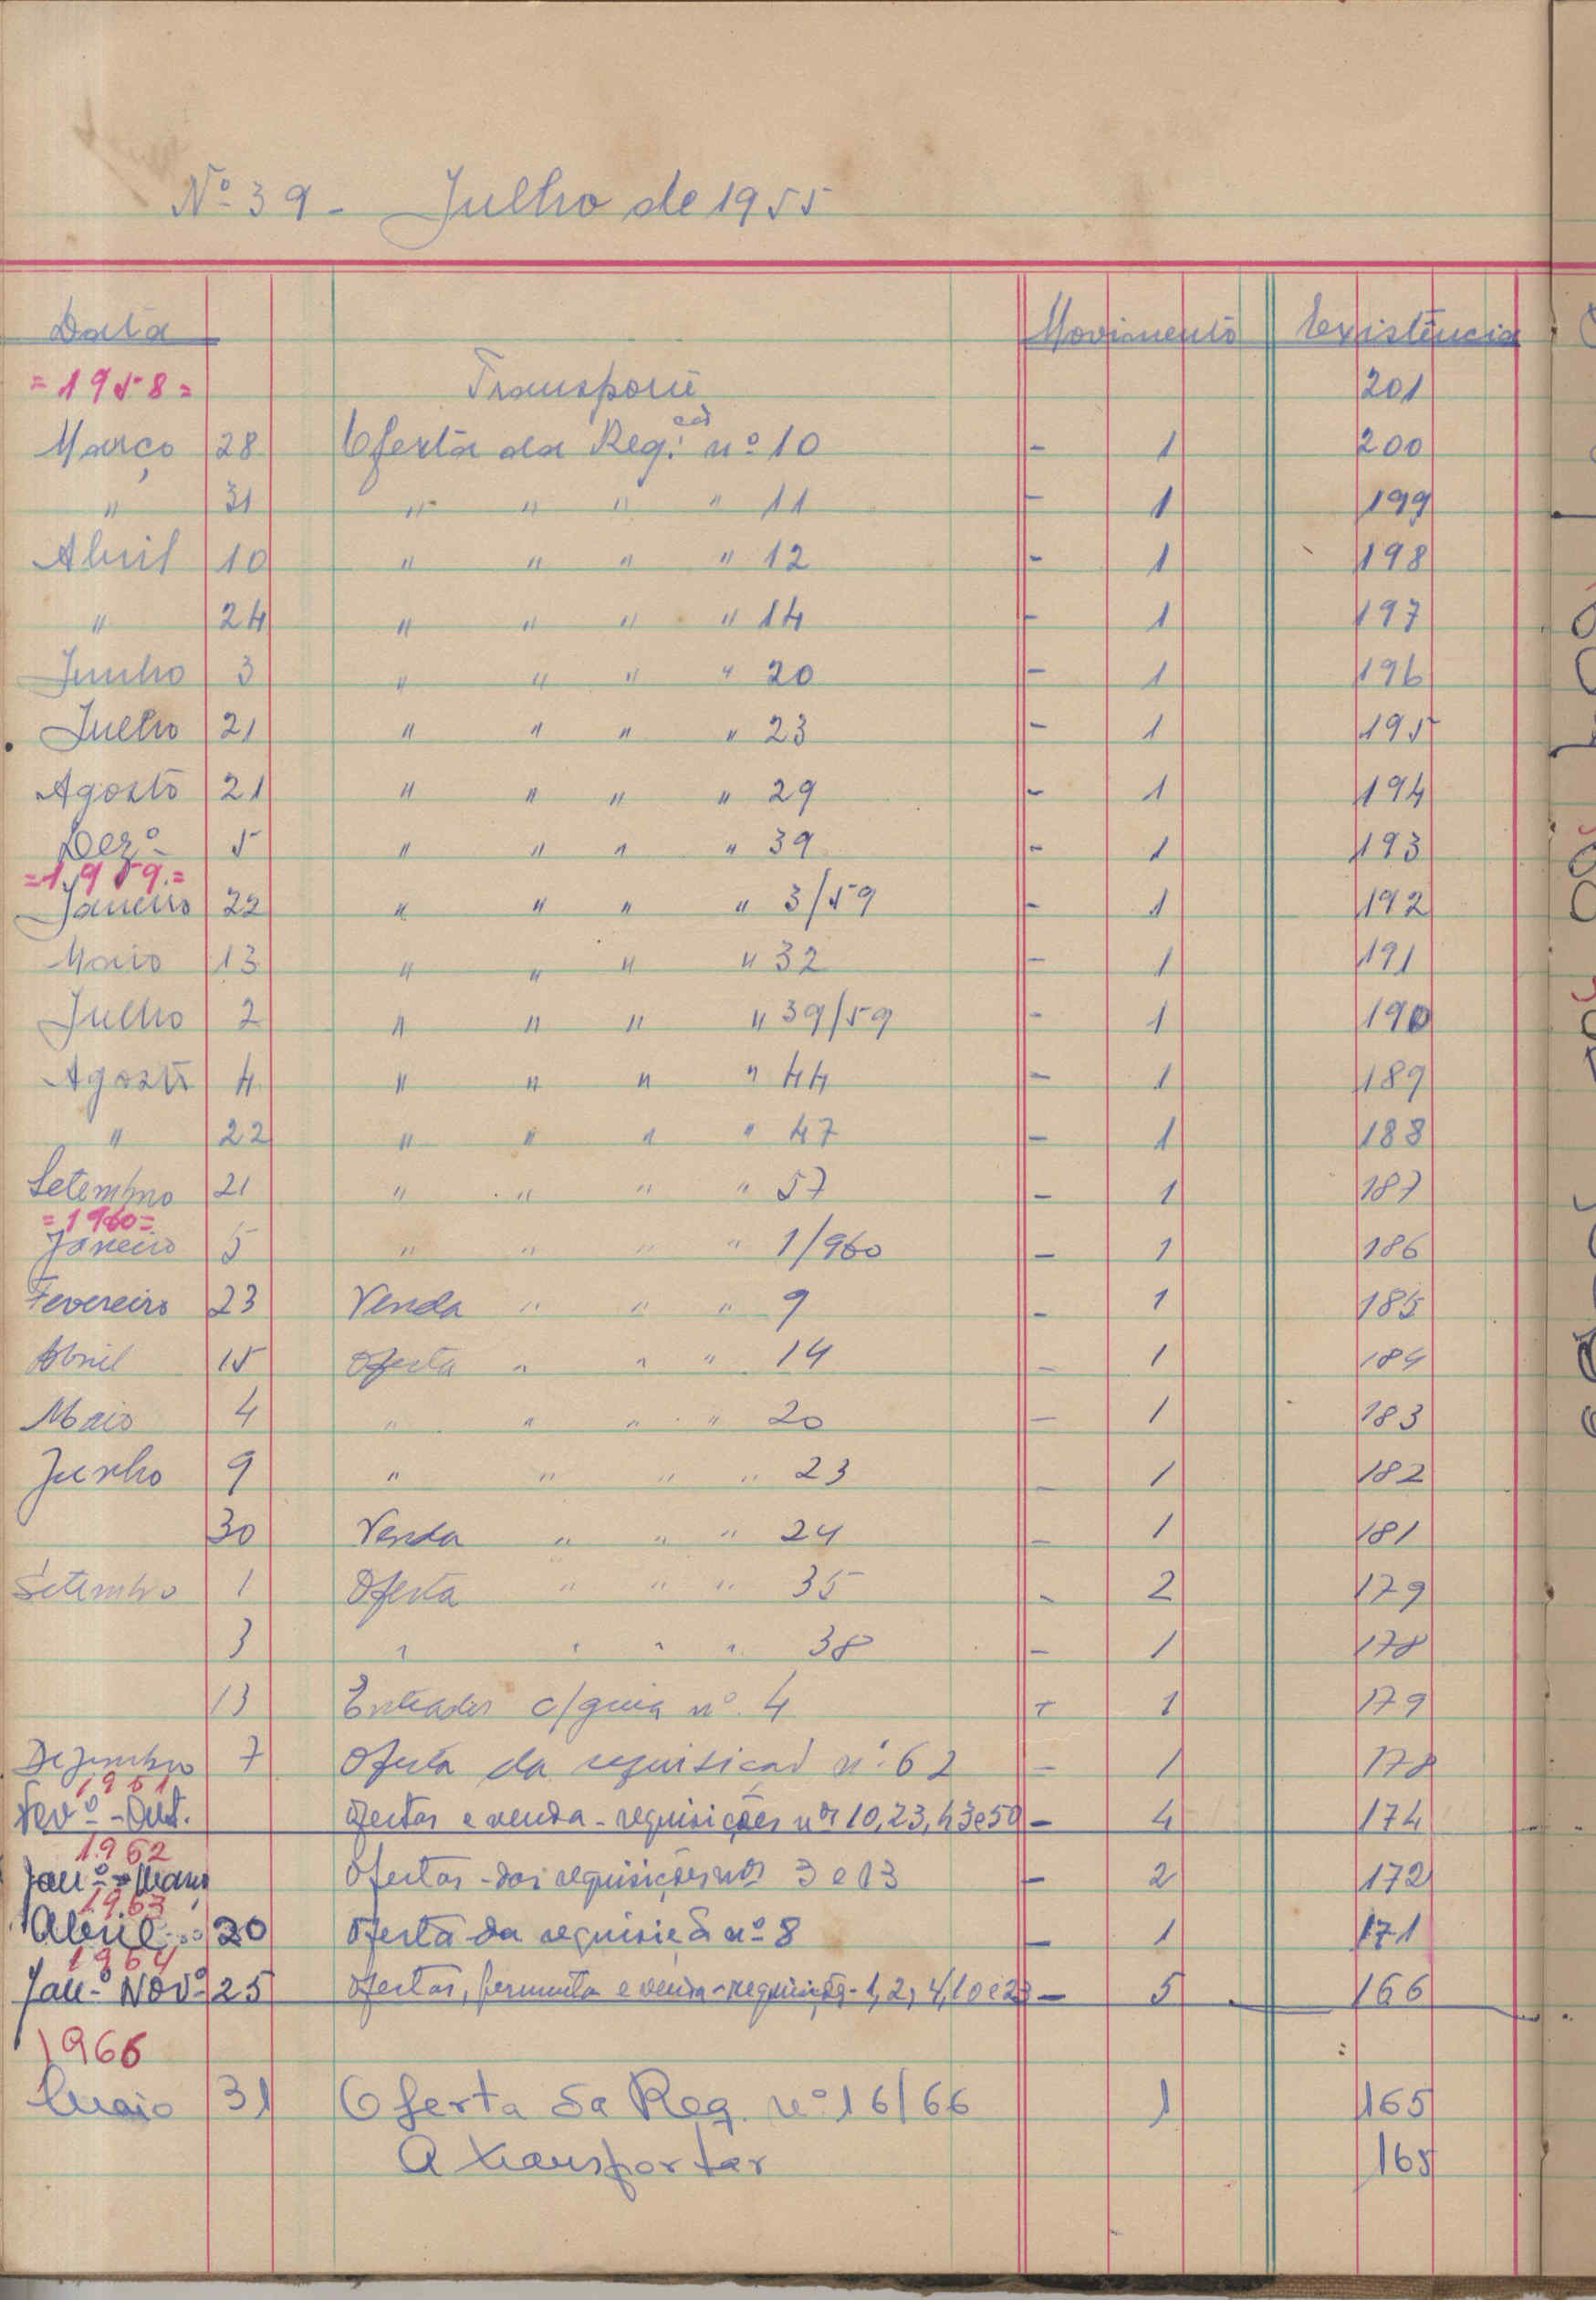 Nº 39 - Julho de 1955
Data Movimento Existência
=1958= Transporte 201
Março 28 Oferta da Reg. ção nº 10 - 1 200
" 31 " " " " 11 - 1 199
Abril 10 " " " " 12 - 1 198
" 24 " " " " 14 - 1 197
Junho 3 " " " " 20 - 1 196
Julho 21 " " " " 23 - 1 195
Agosto 21 " " " " 29 - 1 194
Dezº 5 " " " " 39 - 1 193
=1959.=
Janeiro 22 " " " " 3/59 - 1 192
Maio 13 " " " " 32 - 1 191
Julho 2 " " " " 39/59 - 1 190
Agosto 4 " " " " 44 - 1 189
" 22 " " " " 47 - 1 188
Setembro 21 " " " " 57 - 1 187
=1960=
Janeiro 5 " " " " 1/960 - 1 186
Fevereiro 23 Venda " " " 9 - 1 185
Abril 15 Oferta " " " 14 - 1 184
Maio 4 " " " " 20 - 1 183
Junho 9 " " " " 23 - 1 182
30 Venda " " " 24 - 1 181
Setembro 1 Oferta " " " 35 - 2 179
3 " " " " 38 - 1 178
13 Entrada c/guia nº 4 + 1 179
Dezembro 7 Oferta da requisição nº 62 - 1 178
1961
Fevº - Out. Ofertas e venda - requisições nºs 10, 23, 43 e 50 - 4 174
1962
Janº - Março Ofertas - das requisições nºs 3 e 13 - 2 172
1963
Abril 20 Oferta da requisição nº 8 - 1 171
1964
Janº Novº 25 Ofertas, permuta e venda - requisição - 1, 2, 4, 10 e 23 - 5 166
1966
Maio 31 Oferta da Req. nº 16/66 1 165
A transportar 165